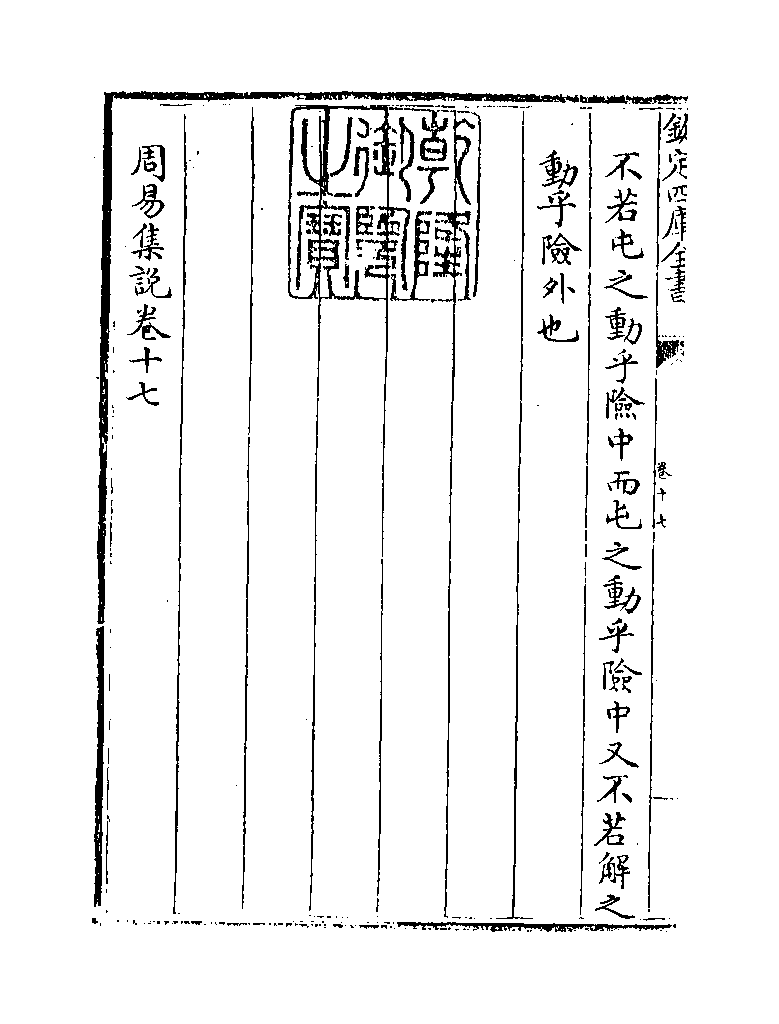 欽定四庫全書
卷十七
不若屯之動乎險中而屯之動乎險中又不若解之
動乎險外也
乾隆御覽之寶
周易集說卷十七